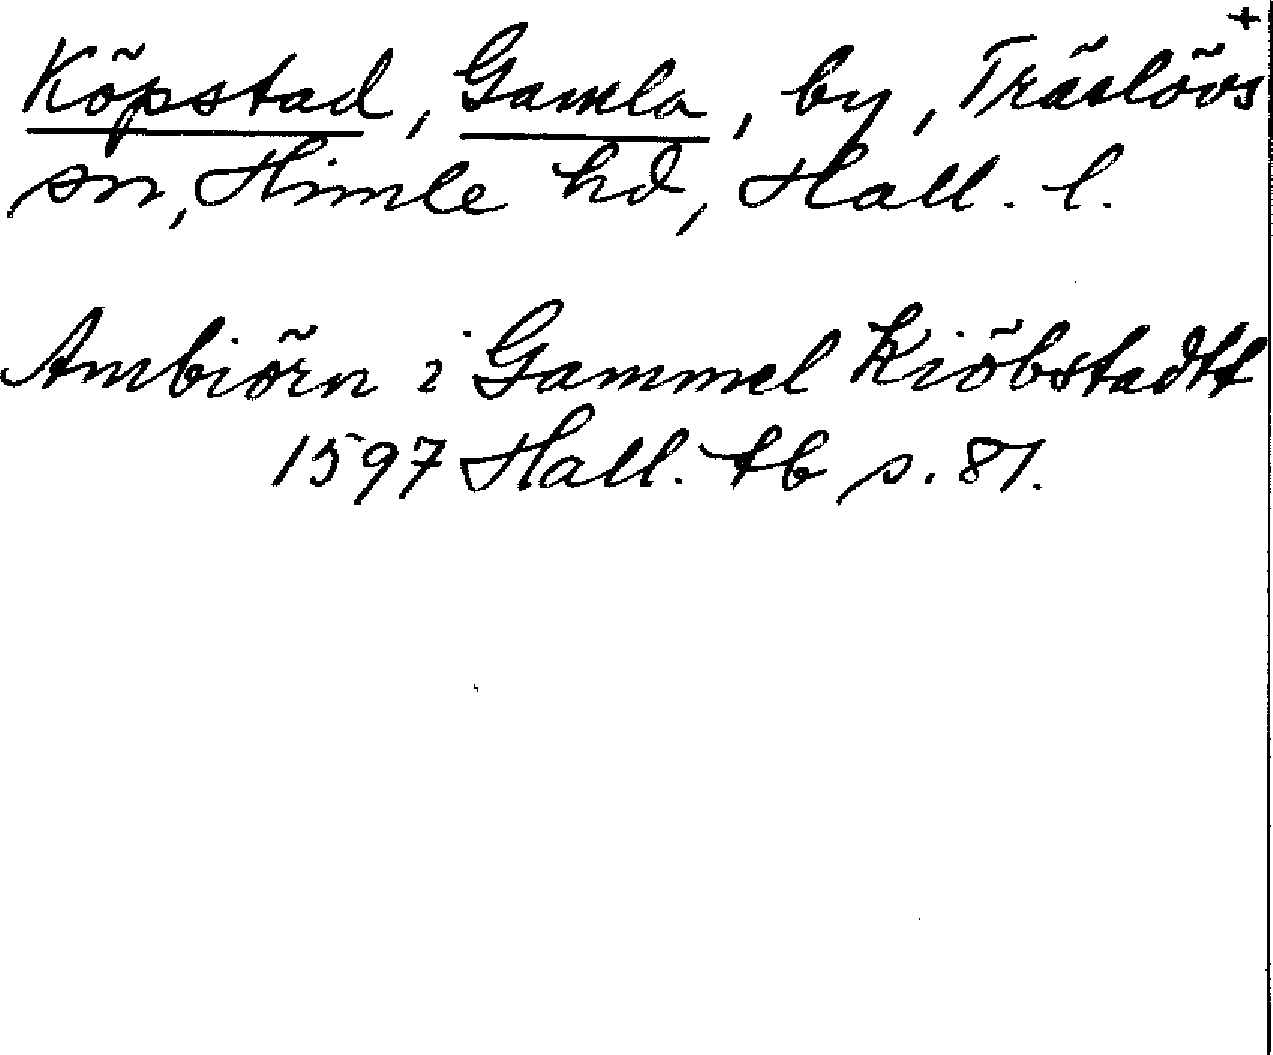 +
Köpstad, Gamla, by, Träslövs
sn, Himle hd, Hall. l.
Ambiörn i Gammel Kiöbstadtt
1597 Hall. tb s. 81.